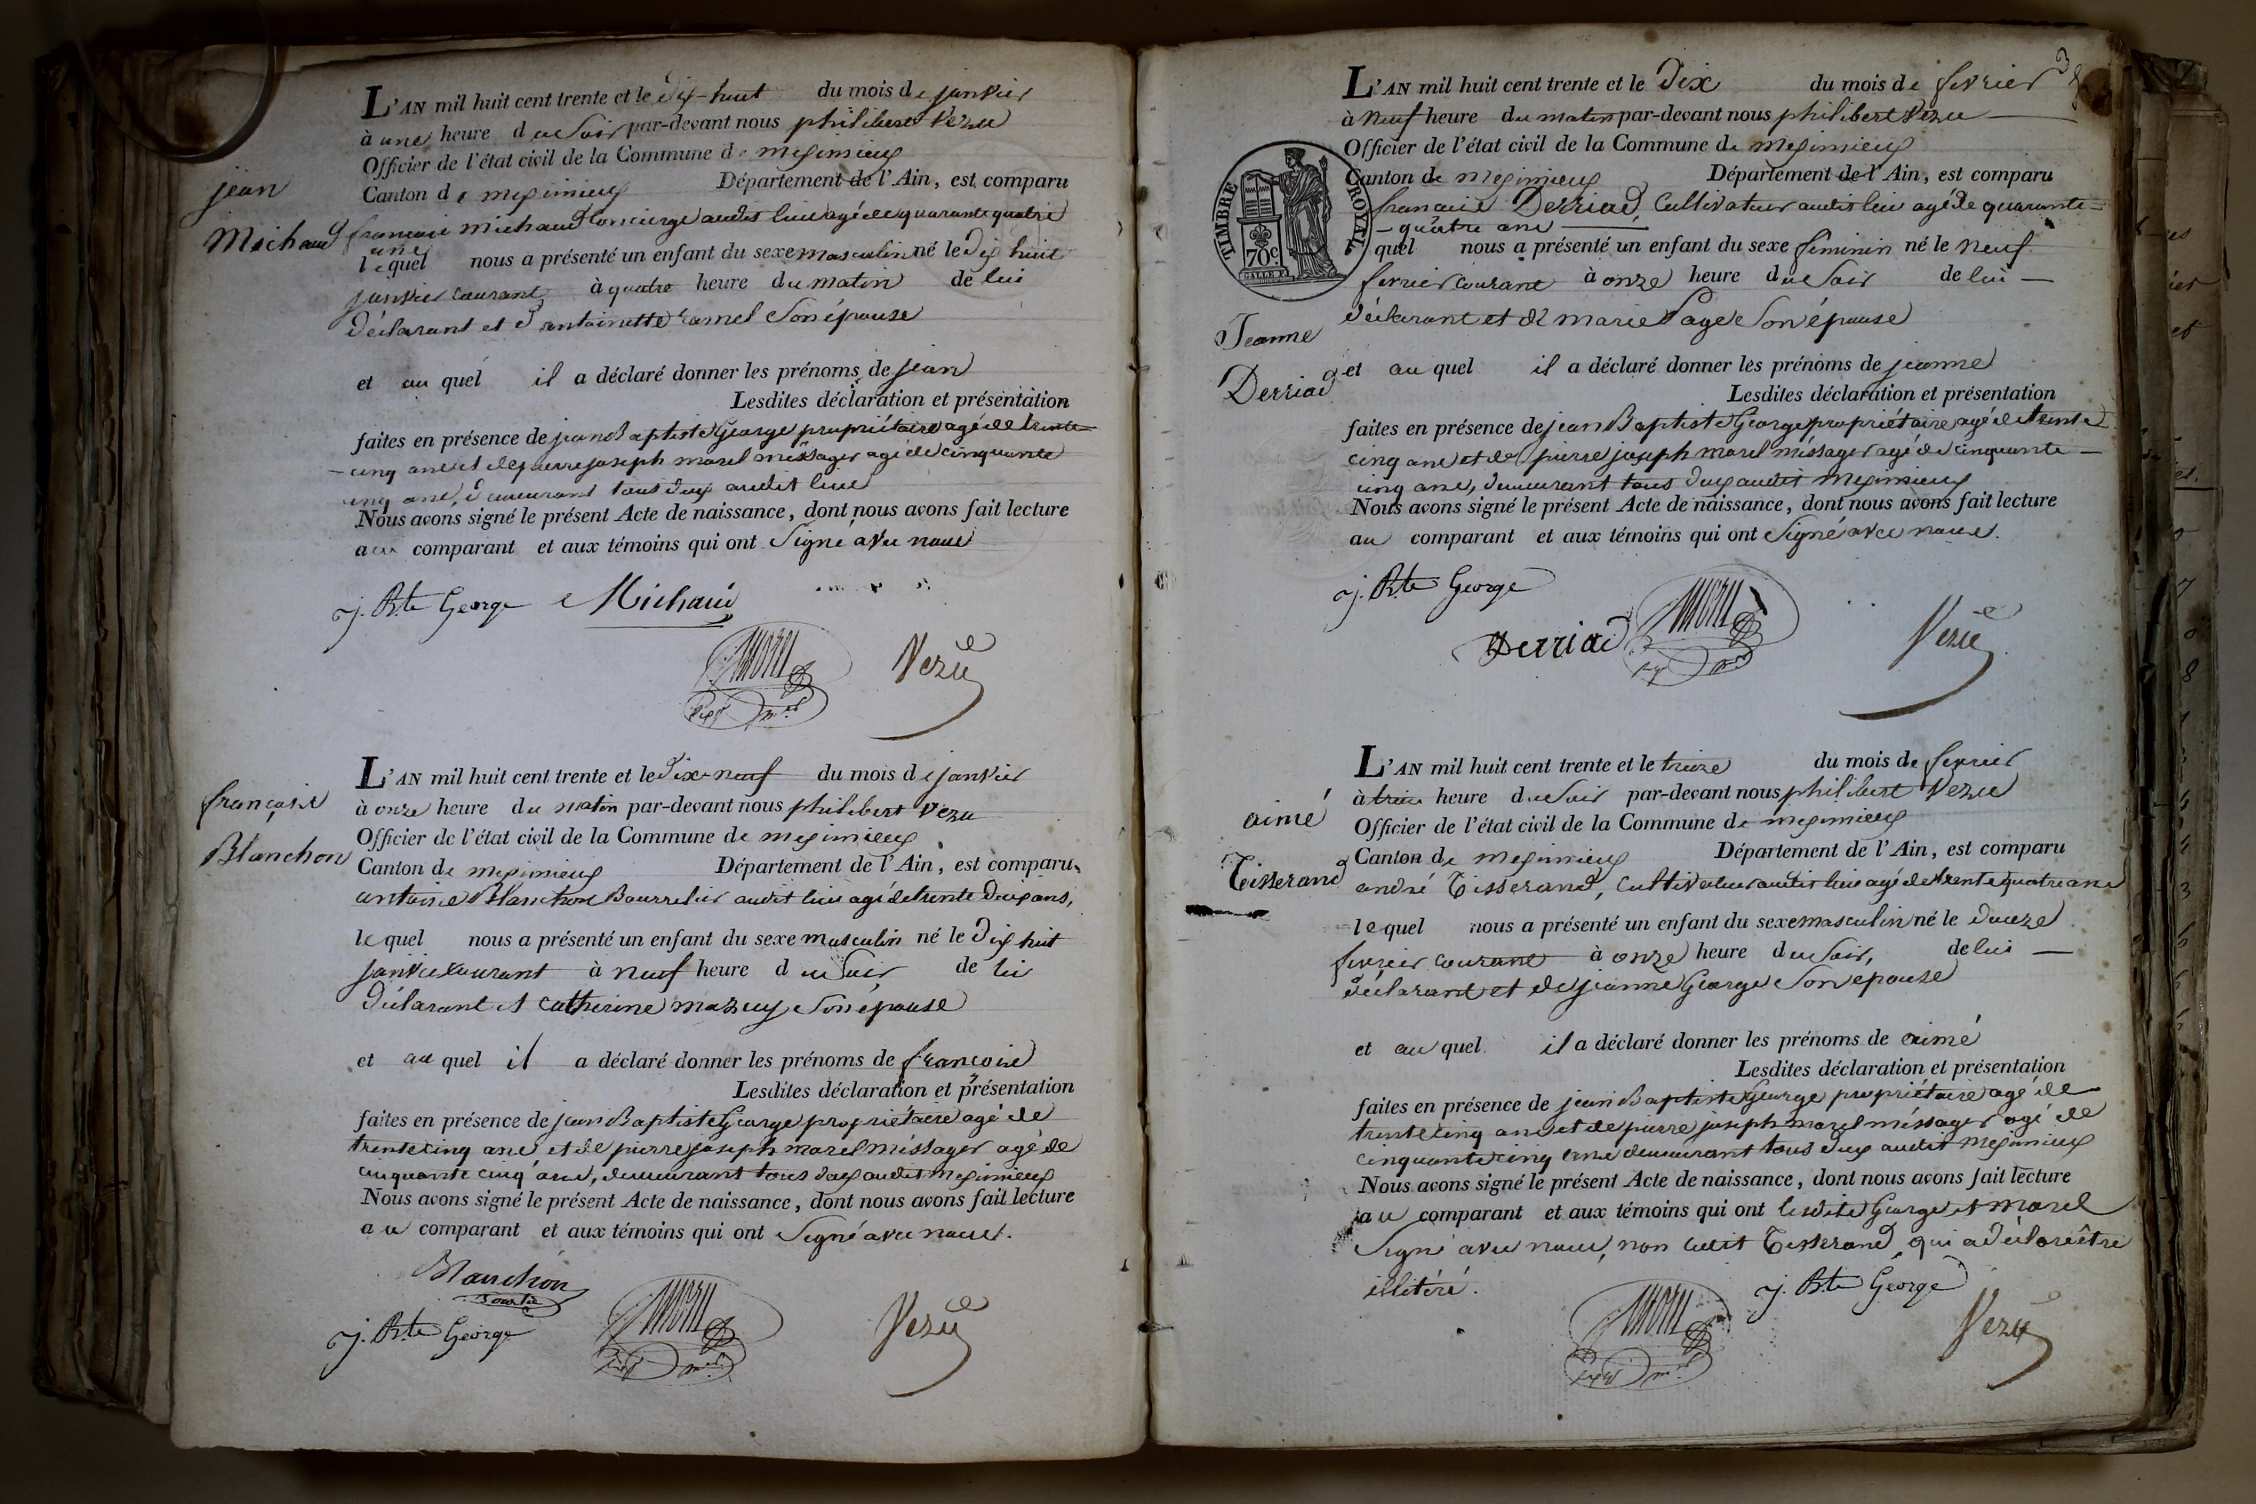 jean
Michaud
L'AN mil huit cent trente et le dix-huit du mois de janvier
à une heure du soir par-devant nous philibert Vezu
Officier de l'état civil de la Commune de meximieux
Canton de meximieux Département de l'Ain, est comparu
françois michaud concierge audit lieu agé de quarante quatre
ans
lequel nous a présenté un enfant du sexe masculin né le dix huit
janvier courant à quatre heure du matin de lui
déclarant et d'antoinette son épouse
et au quel il a déclaré donner les prénoms de jean
Lesdites déclaration et présentation
faites en présence de jean Baptiste George propriétaire agé de trente
cinq ans et de pierre joseph morel méssager agé de cinquante
cinq ans, demeurant tous deux audit lieu
Nous avons signé le présent Acte de naissance, dont nous avons fait lecture
au comparant et aux témoins qui ont signé avec nous
j. Bte George Michaud
Vezu
françois
Blanchon
L'AN mil huit cent trente et le dix-neuf du mois de janvier
à onze heure du matin par-devant nous philibert Vezu
Officier de l'état civil de la Commune de meximieux
Canton de meximieux Département de l'Ain, est comparu
antoine Blanchon Bourrelier audit lieu agé de trente deux ans,
le quel nous a présenté un enfant du sexe masculin né le dix huit
janvier courant à neuf heure du soir de lui
déclarant et catherine mazuy son épouse
et au quel il a déclaré donner les prénoms de françois
Lesdites déclaration et présentation
faites en présence de jean Baptiste George propriétaire agé de
trente cinq ans et de pierre joseph morel méssager agé de
cinquante cinq ans, demeurant tous deux audit meximieux
Nous avons signé le présent Acte de naissance, dont nous avons fait lecture
au comparant et aux témoins qui ont signé avec nous.
Blanchon
j. Bte George
Vezu
3
L'AN mil huit cent trente et le dix du mois de fevrier
à neuf heure du matin par-devant nous philibert Vezu
Officier de l'état civil de la Commune de meximieux
Canton de meximieux Département de l'Ain, est comparu
TIMBRE ROYAL
70c.
françois Derriad, cultivateur audit lieu agé de quarante
quatre ans
quel nous a présenté un enfant du sexe feminin né le neuf
fevrier courant à onze heure du soir de lui
déclarant et de marie Page son épouse
Jeanne
Derriad
et au quel il a déclaré donner les prénoms de jeanne
Lesdites déclaration et présentation
faites en présence de jean Baptiste George propriétaire agé de trente
cinq ans et de pierre joseph morel méssager agé de cinquante
cinq ans, demeurant tous deux audit meximieux
Nous avons signé le présent Acte de naissance, dont nous avons fait lecture
au comparant et aux témoins qui ont signé avec nous.
j. Bte George
Derriad Vezu
aimé
Tisserand
L'AN mil huit cent trente et le treize du mois de fevrier
à heure du soir par-devant nous philibert Vezu
Officier de l'état civil de la Commune de meximieux
Canton de meximieux Département de l'Ain, est comparu
andré Tisserand, cultivateur audit lieu agé de trente quatre ans
lequel nous a présenté un enfant du sexe masculin né le douze
fevrier courant à onze heure du soir, de lui
déclarant et de jeanne George son epouse
et au quel il a déclaré donner les prénoms de aimé
Lesdites déclaration et présentation
faites en présence de jean Baptiste George propriétaire agé de
trente cinq ans et de pierre joseph morel méssager agé de
cinquante cinq ans demeurant tous deux audit meximieux
Nous avons signé le présent Acte de naissance, dont nous avons fait lecture
au comparant et aux témoins qui ont lesdits George et morel
signé avec nous, non ledit Tisserand qui a déclaré être
illitéré.
j. Bte George
Vezu